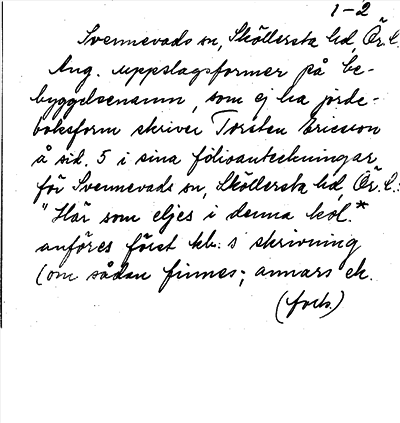 1-2
Svennevads sn, Sköllersta hd, Ör. l.
Ang. uppslagsformer på be-
byggelsenamn, som ej ha jorde-
boksform skriver Torsten Ericsson
å sid. 5 i sina folioanteckningar
för Svennevads sn, Sköllersta hd, Ör. l.:
"Här som eljes i denna kol.*
anföres först kb:s skrivning
(om sådan finnes; annars ek.
(forts.)